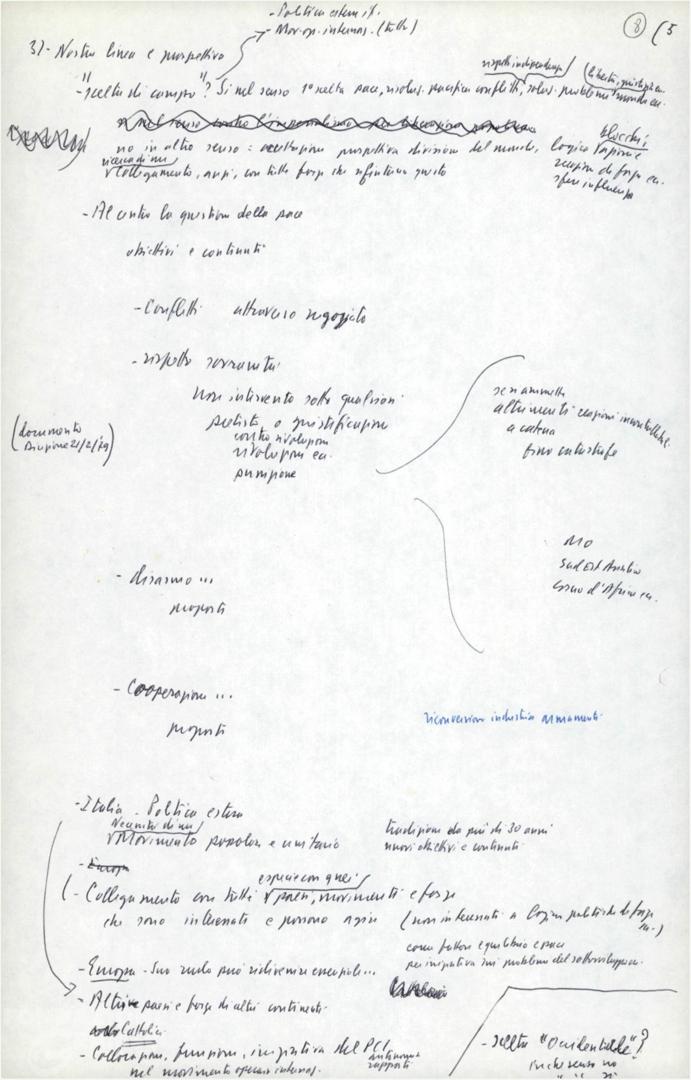 - Politica estera it.
- Mov. op. internaz. (tutto)
8 (5
3)- Nostra linea e prospettiva
rispetto indipendenza
(libertà, giustizia ecc.
- "scelta di campo"? Sì nel senso scelta pace, pacifica conflitti, problemi
no in altro senso: accettazione prospettiva divisione del mondo, logica
blocchi,
ricerca di un
collegamento, anzi, con tutte forze che rifiutano questo
rapporti di forza ecc.
sfere influenza
- Al centro la questione della pace
obiettivi e contenuti
- Conflitti attraverso negoziato
- rispetto sovranità
Non intervento sotto qualsiasi
pretesto o giustificazione
contro rivoluzioni
rivoluzioni ecc.
punizione
(documento
Direzione 21/2/79)
se si ammette
altrimenti reazioni incontrollabili
a catena
fino catastrofe
MO
Sud Est Asiatico
Corno d'Africa ecc.
- disarmo ...
proposte
- Cooperazione ...
proposte
riconversione industria armamenti
- Italia - Politica estera
Necessità di un
Movimento popolare e unitario
tradizione da più di 30 anni
nuovi obiettivi e contenuti
- Europa
specie con quei
(- Collegamento con tutti paesi, movimenti e forze
che sono interessati e possono agire
(non interessati a logica politiche di forza
ecc.)
come fattore equilibrio e pace
per iniziativa sui problemi del sottosviluppo
- Europa - Suo ruolo può ridivenire essenziale ...
- Altri paesi e forze di altri continenti
Cattolici
- Collocazione, funzione, iniziativa del PCI
autonomia
rapporti
nel movimento operaio internaz.
- scelta "Occidentale"?
in che senso no
" " sì